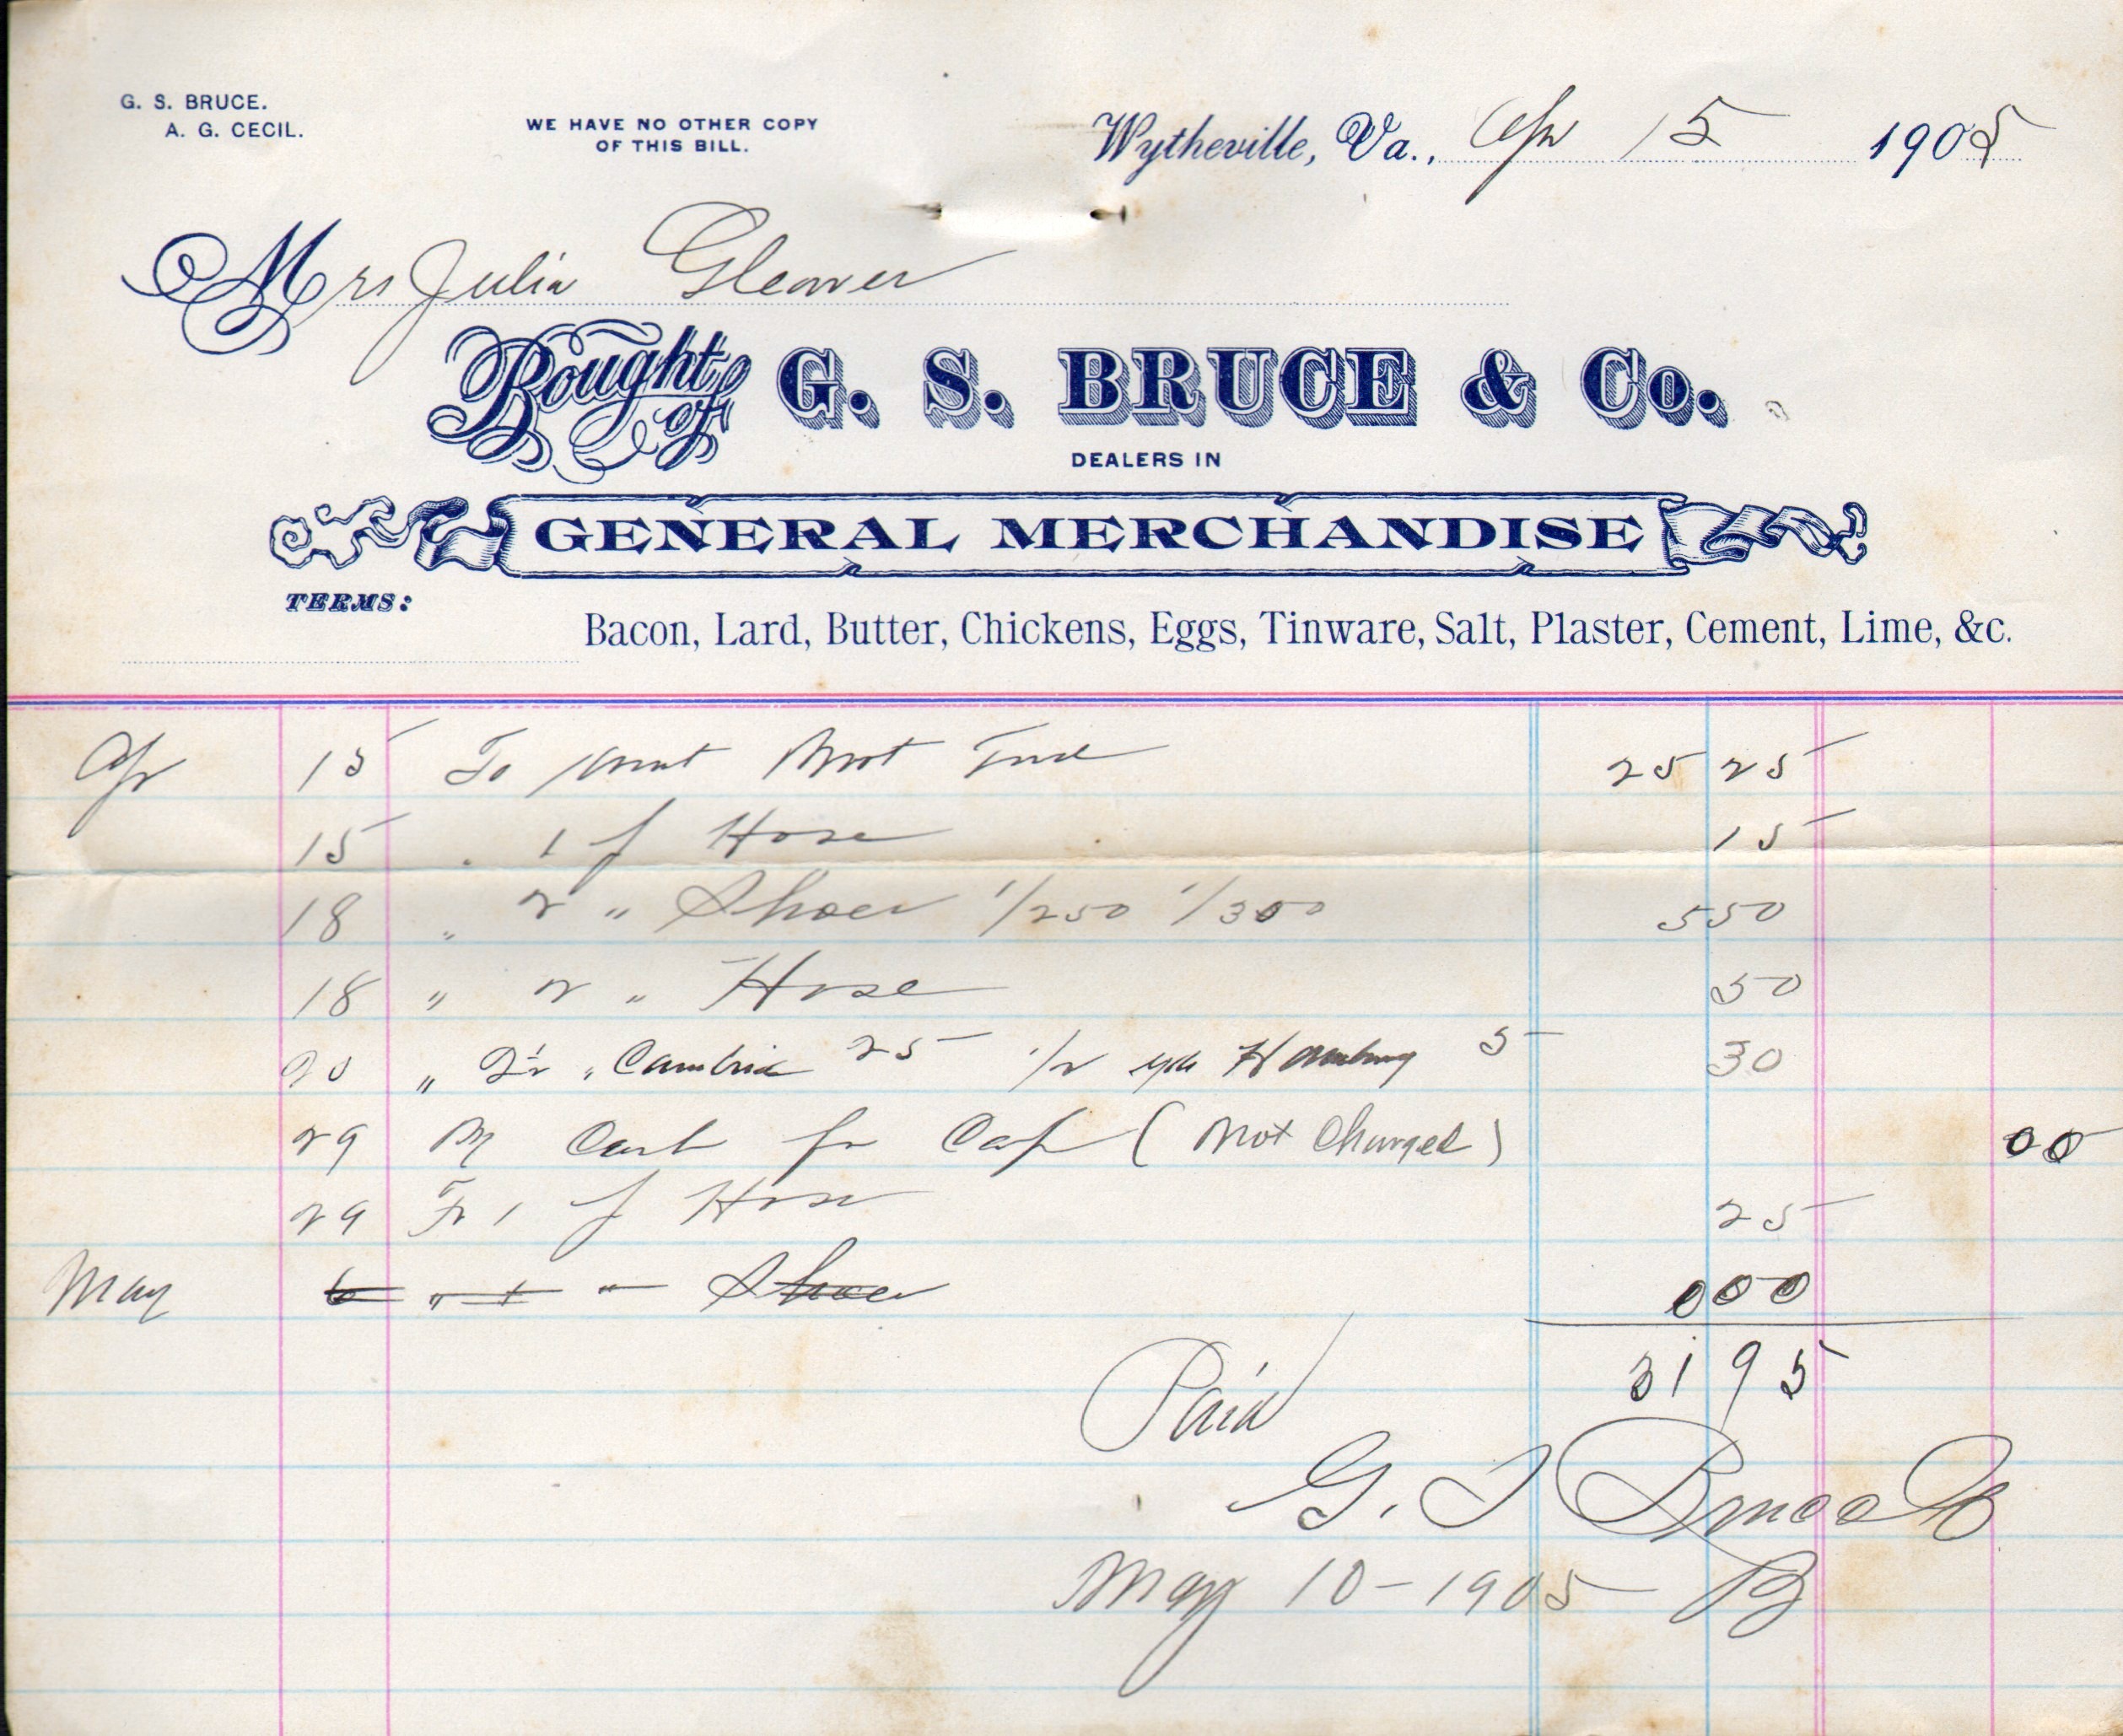 G. S. BRUCE.
A. G. CECIL.
WE HAVE NO OTHER COPY
OF THIS BILL.
Wytheville, Va., Apr 15 1905
Mrs Julia Gleaves
Bought of G. S. BRUCE & Co.
DEALERS IN
GENERAL MERCHANDISE
TERMS:
Bacon, Lard, Butter, Chickens, Eggs, Tinware, Salt, Plaster, Cement, Lime, &c.
Apr 15 To 25 25
15 " 1 p Hose 15
18 " 2 " Shoes 1/250 1/300 5 50
18 " 2 " Hose 50
20 " 2½ " Cambric 25 1/2 yds Hamburg 5 30
29 By Cash for Cap (Not Charged) 00
29 To 1 p Hose 25
May 6 " 1 " Shoes 0 00
31 95
Paid
G. S Bruce & Co
May 10-1905 B